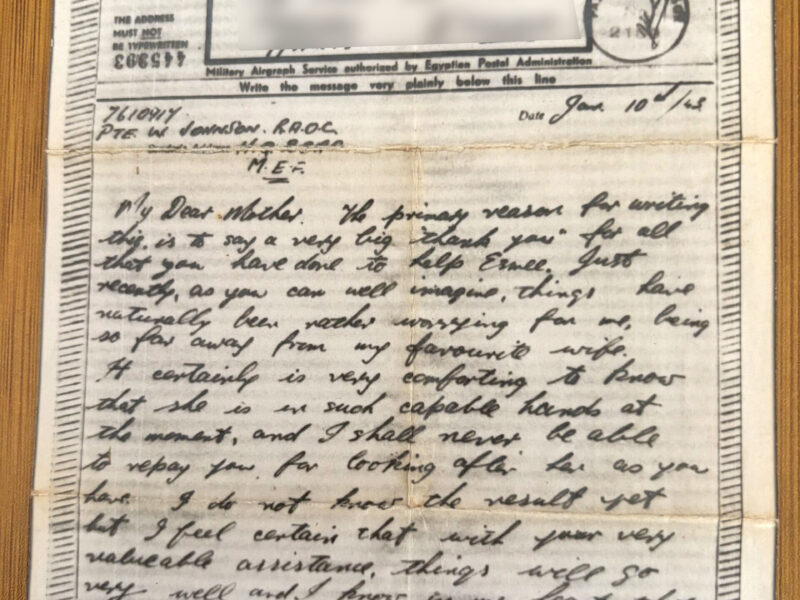 THE ADDRESS
MUST NOT
BE TYPEWRITTEN
445993
Military Airgraph Service authorized by Egyptian Postal Administration
Write the message very plainly below this line
Date Jan 10th/43
PTE W JOHNSON. R.A.O.C.
M.E.F.
My Dear Mother. The primary reason for writing
this, is to say a very big "thank you" for all
that you have done to help Esmee. Just
recently, as you can well imagine, things have
naturally been rather worrying for me, being
so far away from my favourite wife.
It certainly is very comforting to know
that she is in such capable hands at
the moment, and I shall never be able
to repay you for looking after her as you
have. I do not know the result yet
but I feel certain that with your very
valueable assistance, things will go
very well and I know